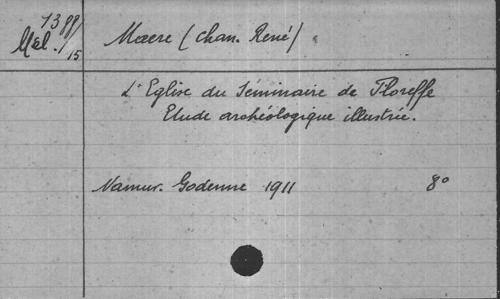 1399
Mél. /15
Maere (chan. René)
L'Eglise du Séminaire de Floreffe
Etude archéologique illustrée.
Namur. Godenne 1911 8°